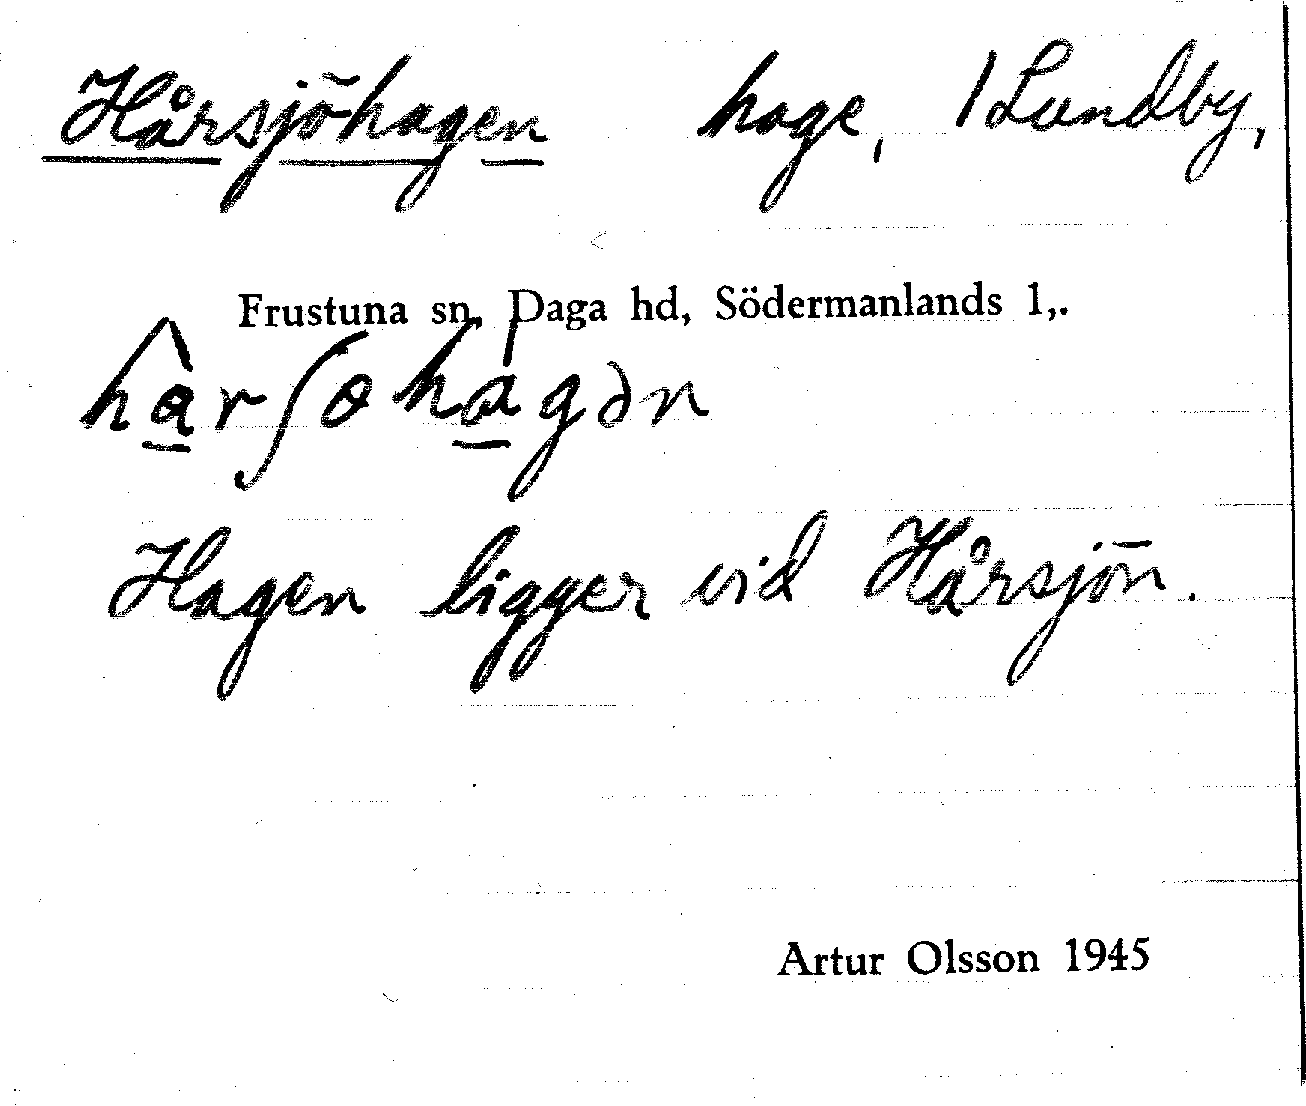 Hårsjöhagen hage, 1 Lundby,
Frustuna sn, Daga hd, Södermanlands l,.
ha̱rʃɵha̱gən
Hagen ligger vid Hårsjön.
Artur Olsson 1945